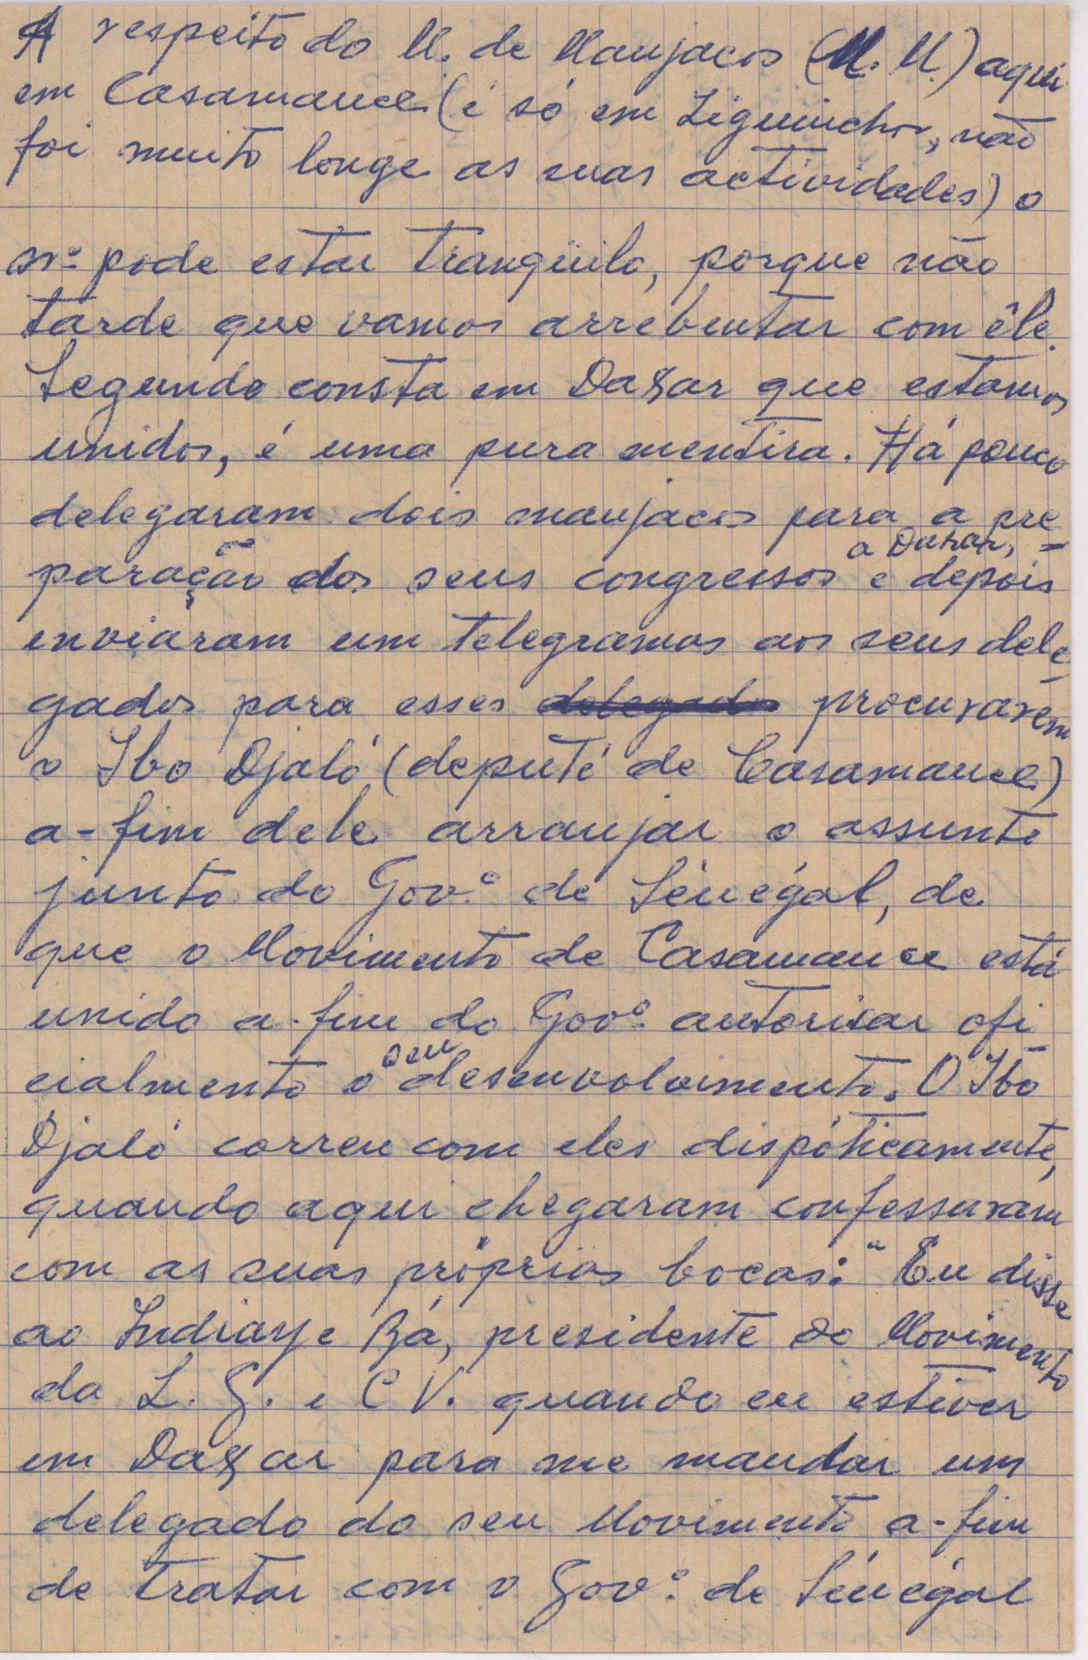 A respeito do M. de Manjacos (M. M.) aqui
em Casamance (é só em Ziguinchor, não
foi muito longe as suas actividades) o
snr. pode estar tranqüilo, porque não
tarde que vamos arrebentar com êle.
Segundo consta em Dakar que estamos
unidos, é uma pura mentira. Há pouco
delegaram dois manjacos para a pre-
paração dos seus congressos a Dakar, e depois
enviaram um telegramas aos seus dele-
gados para esses procurarem
o Ibo Djaló (deputé de Casamance)
a-fim dele arranjar o assunto
junto do Govº de Sénégal, de
que o Movimento de Casamance está
unido a-fim do Govº autorisar ofi-
cialmente o seu desenvolvimento. O Ibo
Djaló correu com eles dispóticamente,
quando aqui chegaram confessaram
com as suas próprias bocas: "Eu disse
ao Indiaye Bá, presidente do Movimento
da L. G. e C V. quando eu estiver
em Dakar para me mandar um
delegado do seu Movimento a-fim
de tratar com o Govº de Sénégal